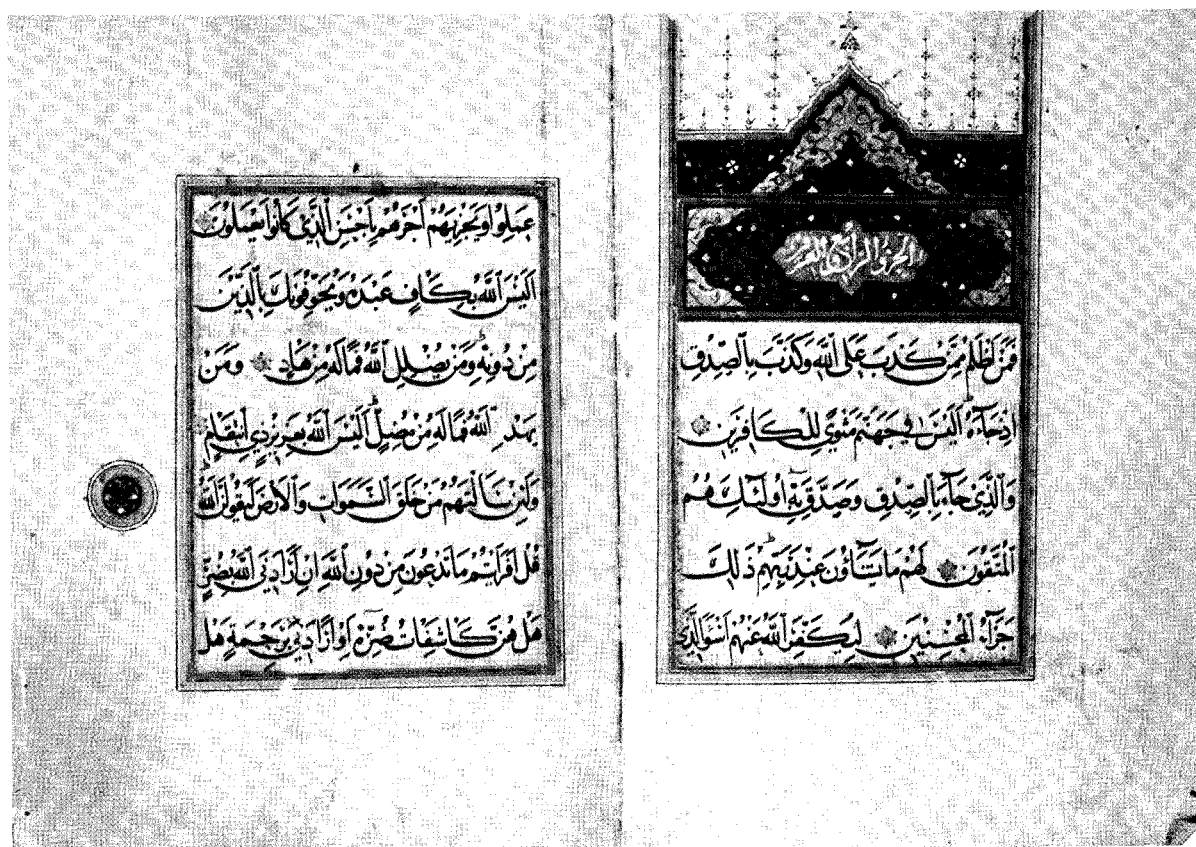 الجزؤ الرابع والعشرون
فَمَنْ اَظْلَمُ مِمَّنْ كَذَبَ عَلَى اللّٰهِ وَكَذَّبَ بِالصِّدْقِ
اِذْ جَآءَهُ اَلَيْسَ فِي جَهَنَّمَ مَثْوًى لِلْكَافِرِينَ
وَالَّذِي جَآءَ بِالصِّدْقِ وَصَدَّقَ بِهِ اُولٰئِكَ هُمُ
الْمُتَّقُونَ لَهُمْ مَا يَشَآؤُنَ عِنْدَ رَبِّهِمْ ذَلِكَ
جَزَآءُ الْمُحْسِنِينَ لِيُكَفِّرَ اللّٰهُ عَنْهُمْ اَسْوَاَ الَّذِي
عَمِلُوا وَيَجْزِيَهُمْ اَجْرَهُمْ بِاَحْسَنِ الَّذِي كَانُوا يَعْمَلُونَ
اَلَيْسَ اللّٰهُ بِكَافٍ عَبْدَهُ وَيُخَوِّفُونَكَ بِالَّذِينَ
مِنْ دُونِهِ وَمَنْ يُضْلِلِ اللّٰهُ فَمَا لَهُ مِنْ هَادٍ وَمَنْ
يَهْدِ اللّٰهُ فَمَا لَهُ مِنْ مُضِلٍّ اَلَيْسَ اللّٰهُ بِعَزِيزٍ ذِي انْتِقَامٍ
وَلَئِنْ سَاَلْتَهُمْ مَنْ خَلَقَ السَّمَوَاتِ وَالْاَرْضَ لَيَقُولُنَّ اللّٰهُ
قُلْ اَفَرَاَيْتُمْ مَا تَدْعُونَ مِنْ دُونِ اللّٰهِ اِنْ اَرَادَنِيَ اللّٰهُ بِضُرٍّ
هَلْ هُنَّ كَاشِفَاتُ ضُرِّهِ اَوْ اَرَادَنِي بِرَحْمَةٍ هَلْ